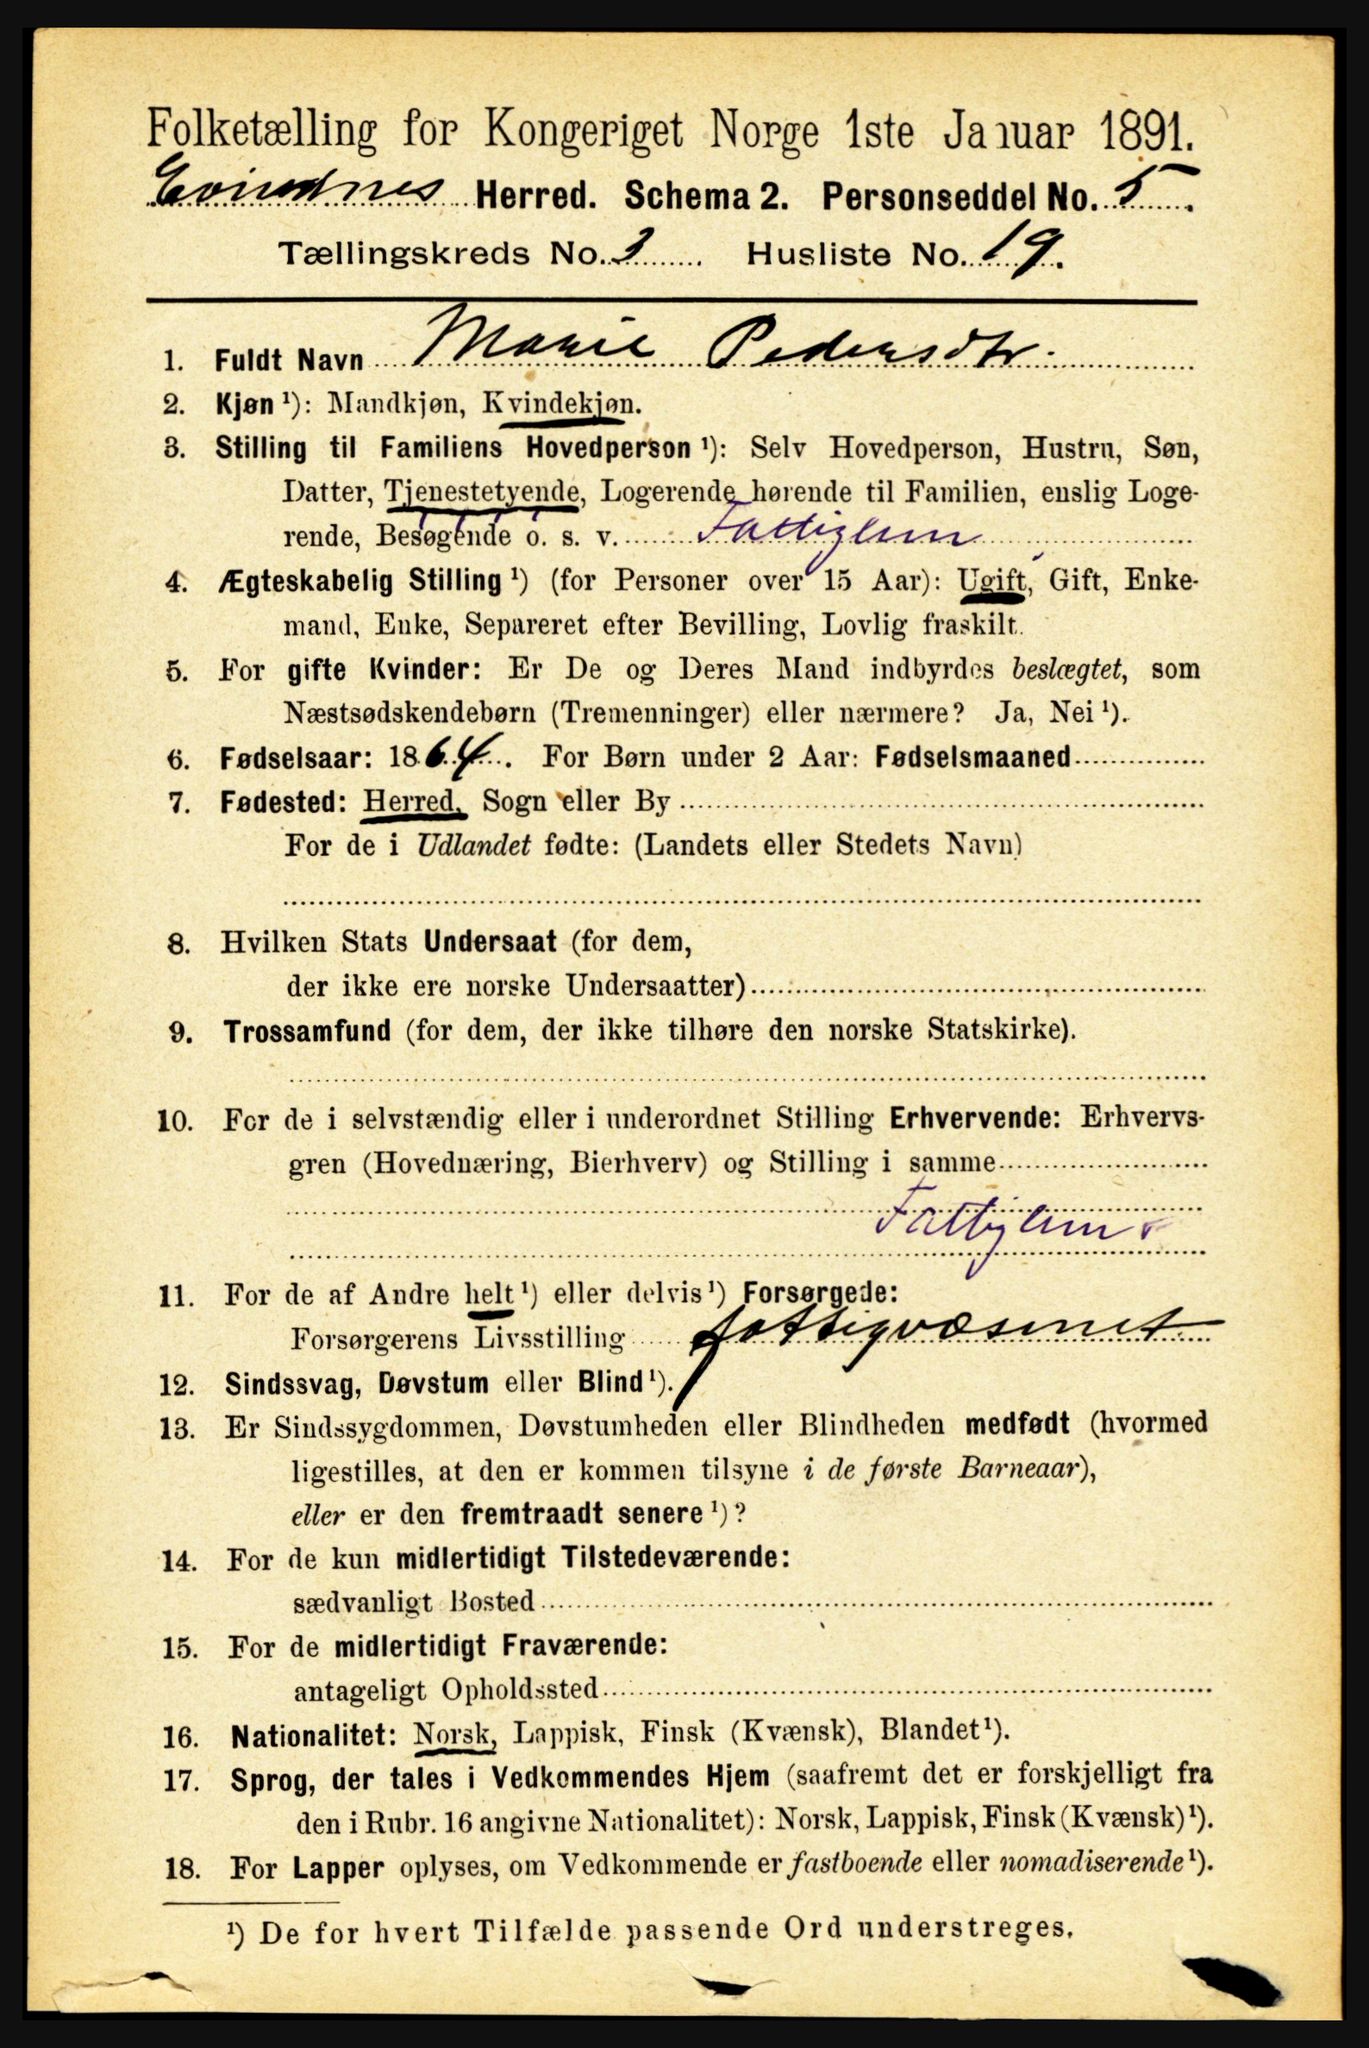 Folketælling for Kongeriget Norge 1ste Januar 1891.
Evindnes Herred. Schema 2. Personseddel No. 5.
Tællingskreds No. 3 Husliste No. 19.
1. Fuldt Navn Marie Pedersdtr.
2. Kjøn ¹): Mandkjøn, Kvindekjøn.
3. Stilling til Familiens Hovedperson ¹): Selv Hovedperson, Hustru, Søn,
Datter, Tjenestetyende, Logerende hørende til Familien, enslig Loge-
rende, Besøgende o. s. v. Fattiglem
4. Ægteskabelig Stilling ¹) (for Personer over 15 Aar): Ugift, Gift, Enke-
mand, Enke, Separeret efter Bevilling, Lovlig fraskilt.
5. For gifte Kvinder: Er De og Deres Mand indbyrdes beslægtet, som
Næstsødskendebørn (Tremenninger) eller nærmere? Ja, Nei ¹).
6. Fødselsaar: 1864. For Børn under 2 Aar: Fødselsmaaned
7. Fødested: Herred, Sogn eller By
For de i Udlandet fødte: (Landets eller Stedets Navn)
8. Hvilken Stats Undersaat (for dem,
der ikke ere norske Undersaatter)
9. Trossamfund (for dem, der ikke tilhøre den norske Statskirke).
10. For de i selvstændig eller i underordnet Stilling Erhvervende: Erhvervs-
gren (Hovednæring, Bierhverv) og Stilling i samme
Fattiglem
11. For de af Andre helt ¹) eller delvis ¹) Forsørgede:
Forsørgerens Livsstilling fattigvæsenet
12. Sindssvag, Døvstum eller Blind ¹).
13. Er Sindssygdommen, Døvstumheden eller Blindheden medfødt (hvormed
ligestilles, at den er kommen tilsyne i de første Barneaar),
eller er den fremtraadt senere ¹)?
14. For de kun midlertidigt Tilstedeværende:
sædvanligt Bosted
15. For de midlertidigt Fraværende:
antageligt Opholdssted
16. Nationalitet: Norsk, Lappisk, Finsk (Kvænsk), Blandet ¹).
17. Sprog, der tales i Vedkommendes Hjem (saafremt det er forskjelligt fra
den i Rubr. 16 angivne Nationalitet): Norsk, Lappisk, Finsk (Kvænsk) ¹).
18. For Lapper oplyses, om Vedkommende er fastboende eller nomadiserende ¹).
¹) De for hvert Tilfælde passende Ord understreges.